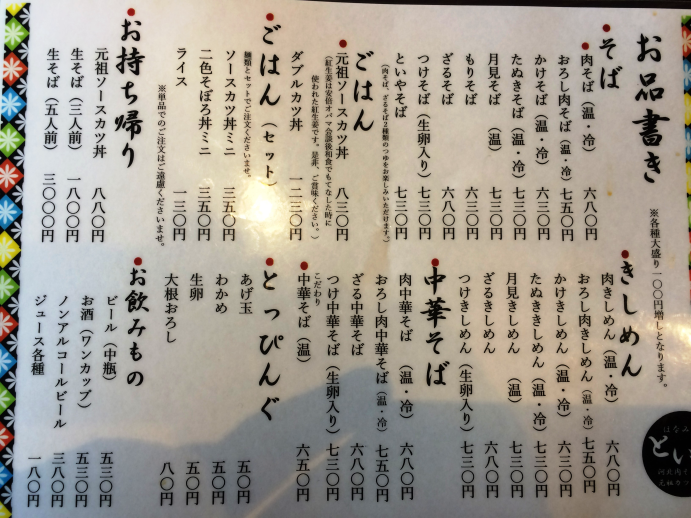 お品書き
※各種大盛り一〇〇円増しとなります。
そば
肉そば（温・冷） 六八〇円
おろし肉そば（温・冷） 七五〇円
かけそば（温・冷） 六三〇円
たぬきそば（温・冷） 七三〇円
月見そば（温） 七三〇円
もりそば 六三〇円
ざるそば 六八〇円
つけそば（生卵入り） 七三〇円
といやそば 七三〇円
（肉そば、ざるそば2種類のつゆをお楽しみいただけます。）
ごはん
元祖ソースカツ丼 八三〇円
（紅生姜は安倍オバマ会談後和食でもてなした時に
使われた紅生姜です。是非、ご賞味ください。）
ダブルカツ丼 一二三〇円
ごはん（セット）
麺類とセットでご注文くださいませ。
ソースカツ丼ミニ 三五〇円
二色そぼろ丼ミニ 三五〇円
ライス 一三〇円
※単品でのご注文はご遠慮くださいませ。
お持ち帰り
元祖ソースカツ丼 八八〇円
生そば（三人前） 一八〇〇円
生そば（五人前） 三〇〇〇円
きしめん
肉きしめん（温・冷） 六八〇円
おろし肉きしめん（温・冷） 七五〇円
かけきしめん（温・冷） 六三〇円
たぬききしめん（温・冷） 七三〇円
月見きしめん（温） 七三〇円
ざるきしめん 六八〇円
つけきしめん（生卵入り） 七三〇円
中華そば
肉中華そば（温・冷） 六八〇円
おろし肉中華そば（温・冷） 七五〇円
ざる中華そば 六八〇円
つけ中華そば（生卵入り） 七三〇円
こだわり
中華そば（温） 六五〇円
とっぴんぐ
あげ玉 五〇円
わかめ 五〇円
生卵 五〇円
大根おろし 八〇円
お飲みもの
ビール（中瓶） 五三〇円
お酒（ワンカップ） 五三〇円
ノンアルコールビール 三八〇円
ジュース各種 一八〇円
とい